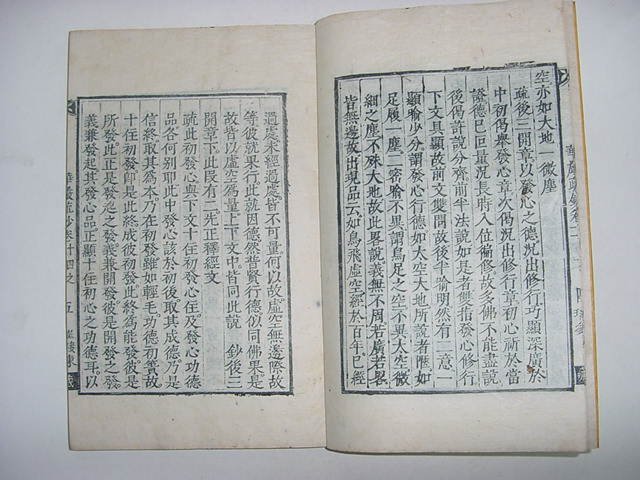 空亦如大地一微塵
疏後三開章以發心之德況出修行巧顯深廣於
中初偈舉發心章次偈況出修行章初心祈於當
證德已叵量況長時入位徧修故多佛不能盡說
後偈許說分齊前半法說如是者雙指發心修行
下文具顯故前文雙開故後半喻明然有二意一
顯喻少分謂發心行德如太空大地所說者唯如
足履一塵二密喻不異謂鳥足之空不異太空微
細之塵不殊大地故此畧說義無不周若廣若畧
皆無邊故出現品云如鳥飛虛空經於百年已經
過處未經過處皆不可量何以故虛空無邊際故
等彼就果行此就因德然普賢行德似同佛果是
故皆以虛空為量上下文中皆同此說 鈔後三
開章下此段有二先正釋經文
疏此初發心與下文十住初發心住及發心功德
品各何別耶此中發心該於初後取其成德乃是
信終取其為本乃在初發雖如輕毛功德初首故
十住初發即是此終成彼初發此終為能發彼是
所發此正是發起之發義兼開發彼是開發之發
義兼發起其發心品正顯十住初心之功德耳以
華嚴疏鈔卷十四之 五